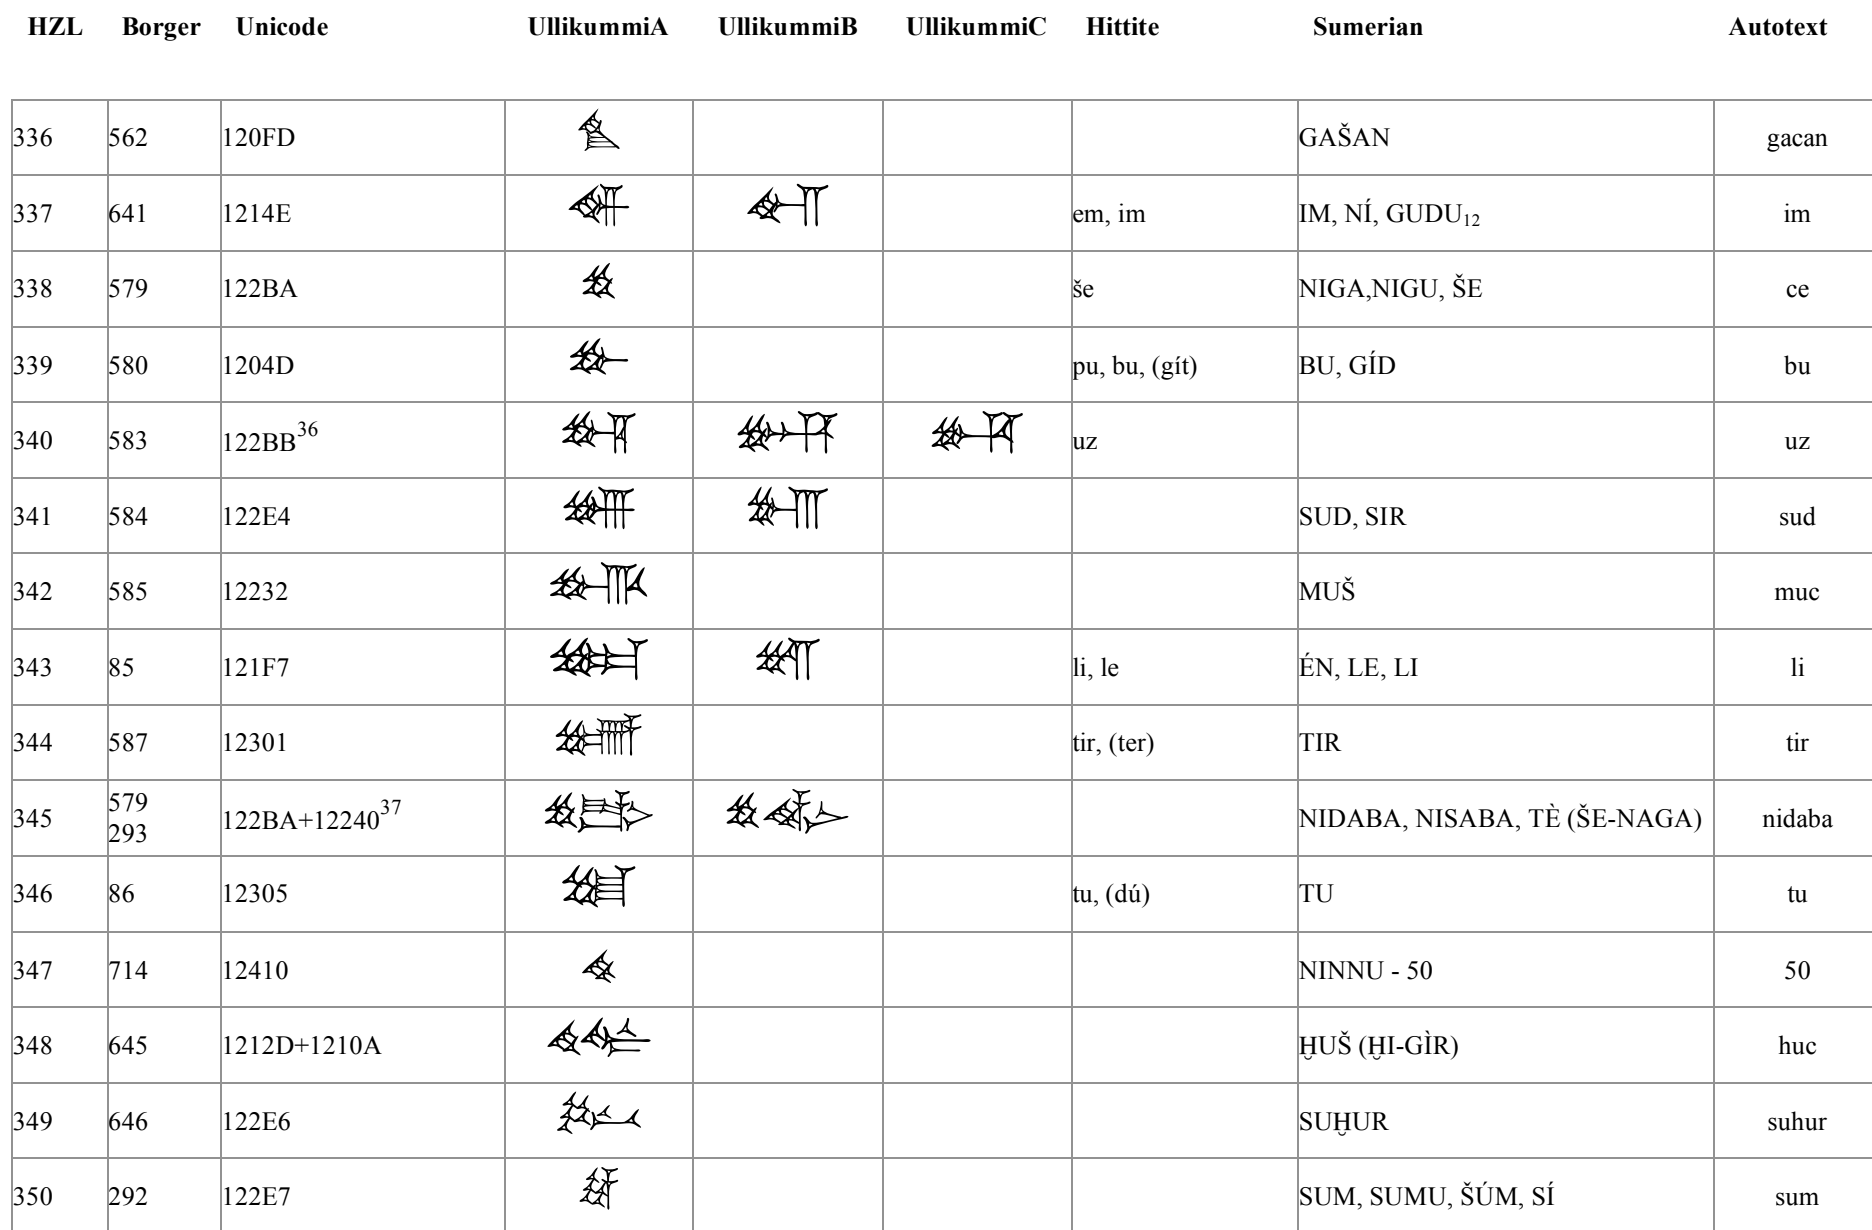 HZL Borger Unicode UllikummiA UllikummiB UllikummiC Hittite Sumerian Autotext
336 562 120FD GAŠAN gacan
337 641 1214E em, im IM, NÍ, GUDU₁₂ im
338 579 122BA še NIGA,NIGU, ŠE ce
339 580 1204D pu, bu, (gít) BU, GÍD bu
340 583 122BB³⁶ uz uz
341 584 122E4 SUD, SIR sud
342 585 12232 MUŠ muc
343 85 121F7 li, le ÉN, LE, LI li
344 587 12301 tir, (ter) TIR tir
345 579 293 122BA+12240³⁷ NIDABA, NISABA, TÈ (ŠE-NAGA) nidaba
346 86 12305 tu, (dú) TU tu
347 714 12410 NINNU - 50 50
348 645 1212D+1210A ḪUŠ (ḪI-GÌR) huc
349 646 122E6 SUḪUR suhur
350 292 122E7 SUM, SUMU, ŠÚM, SÍ sum